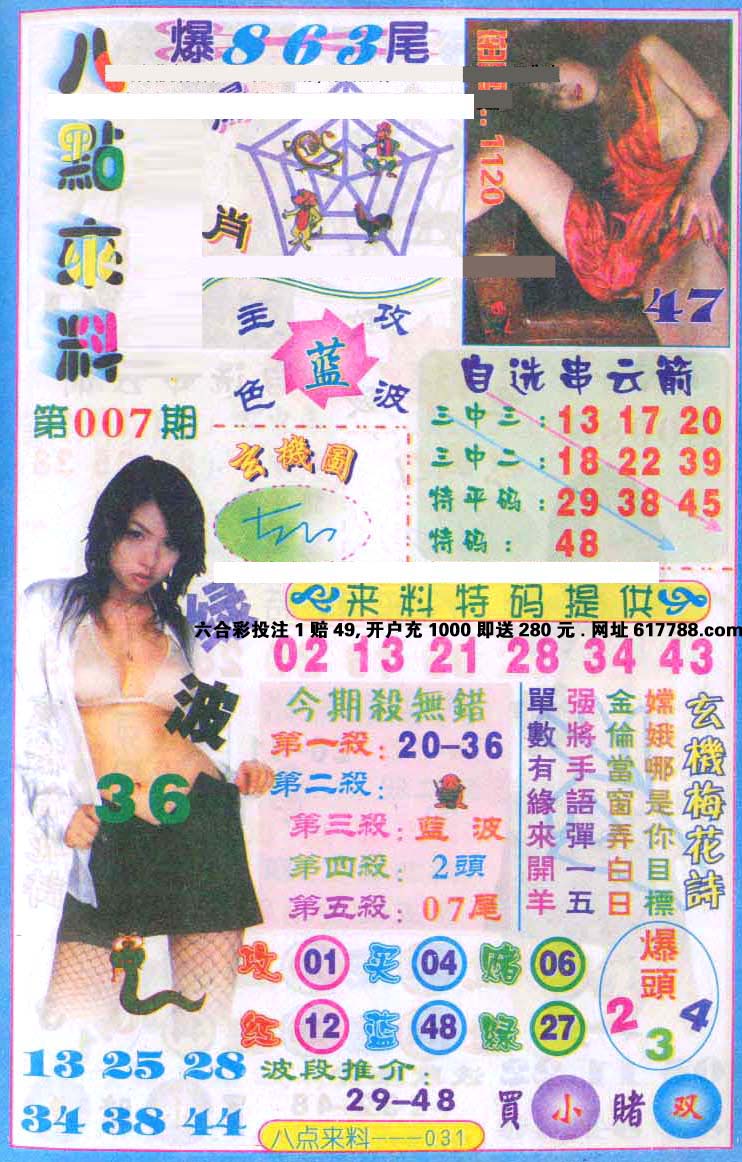 爆863尾
八點來料
肖
1120
47
主攻
蓝
色波
第007期
自选串云箭
三中三：13 17 20
三中二：18 22 39
特平码：29 38 45
特码：48
玄機圖
来料特码提供
六合彩投注1赔49,开户充1000即送280元.网址617788.com
02 13 21 28 34 43
绿波
36
今期殺無錯
第一殺：20-36
第二殺：
第三殺：蓝波
第四殺：2頭
第五殺：07尾
玄機梅花詩
嫦娥哪是你目標
金倫當窗弄白日
强將手語彈一五
單數有緣來開羊
攻 01 买 04 赌 06
红 12 蓝 48 绿 27
爆頭
2 3 4
13 25 28
34 38 44
波段推介：
29-48
買小赌双
八点来料---031